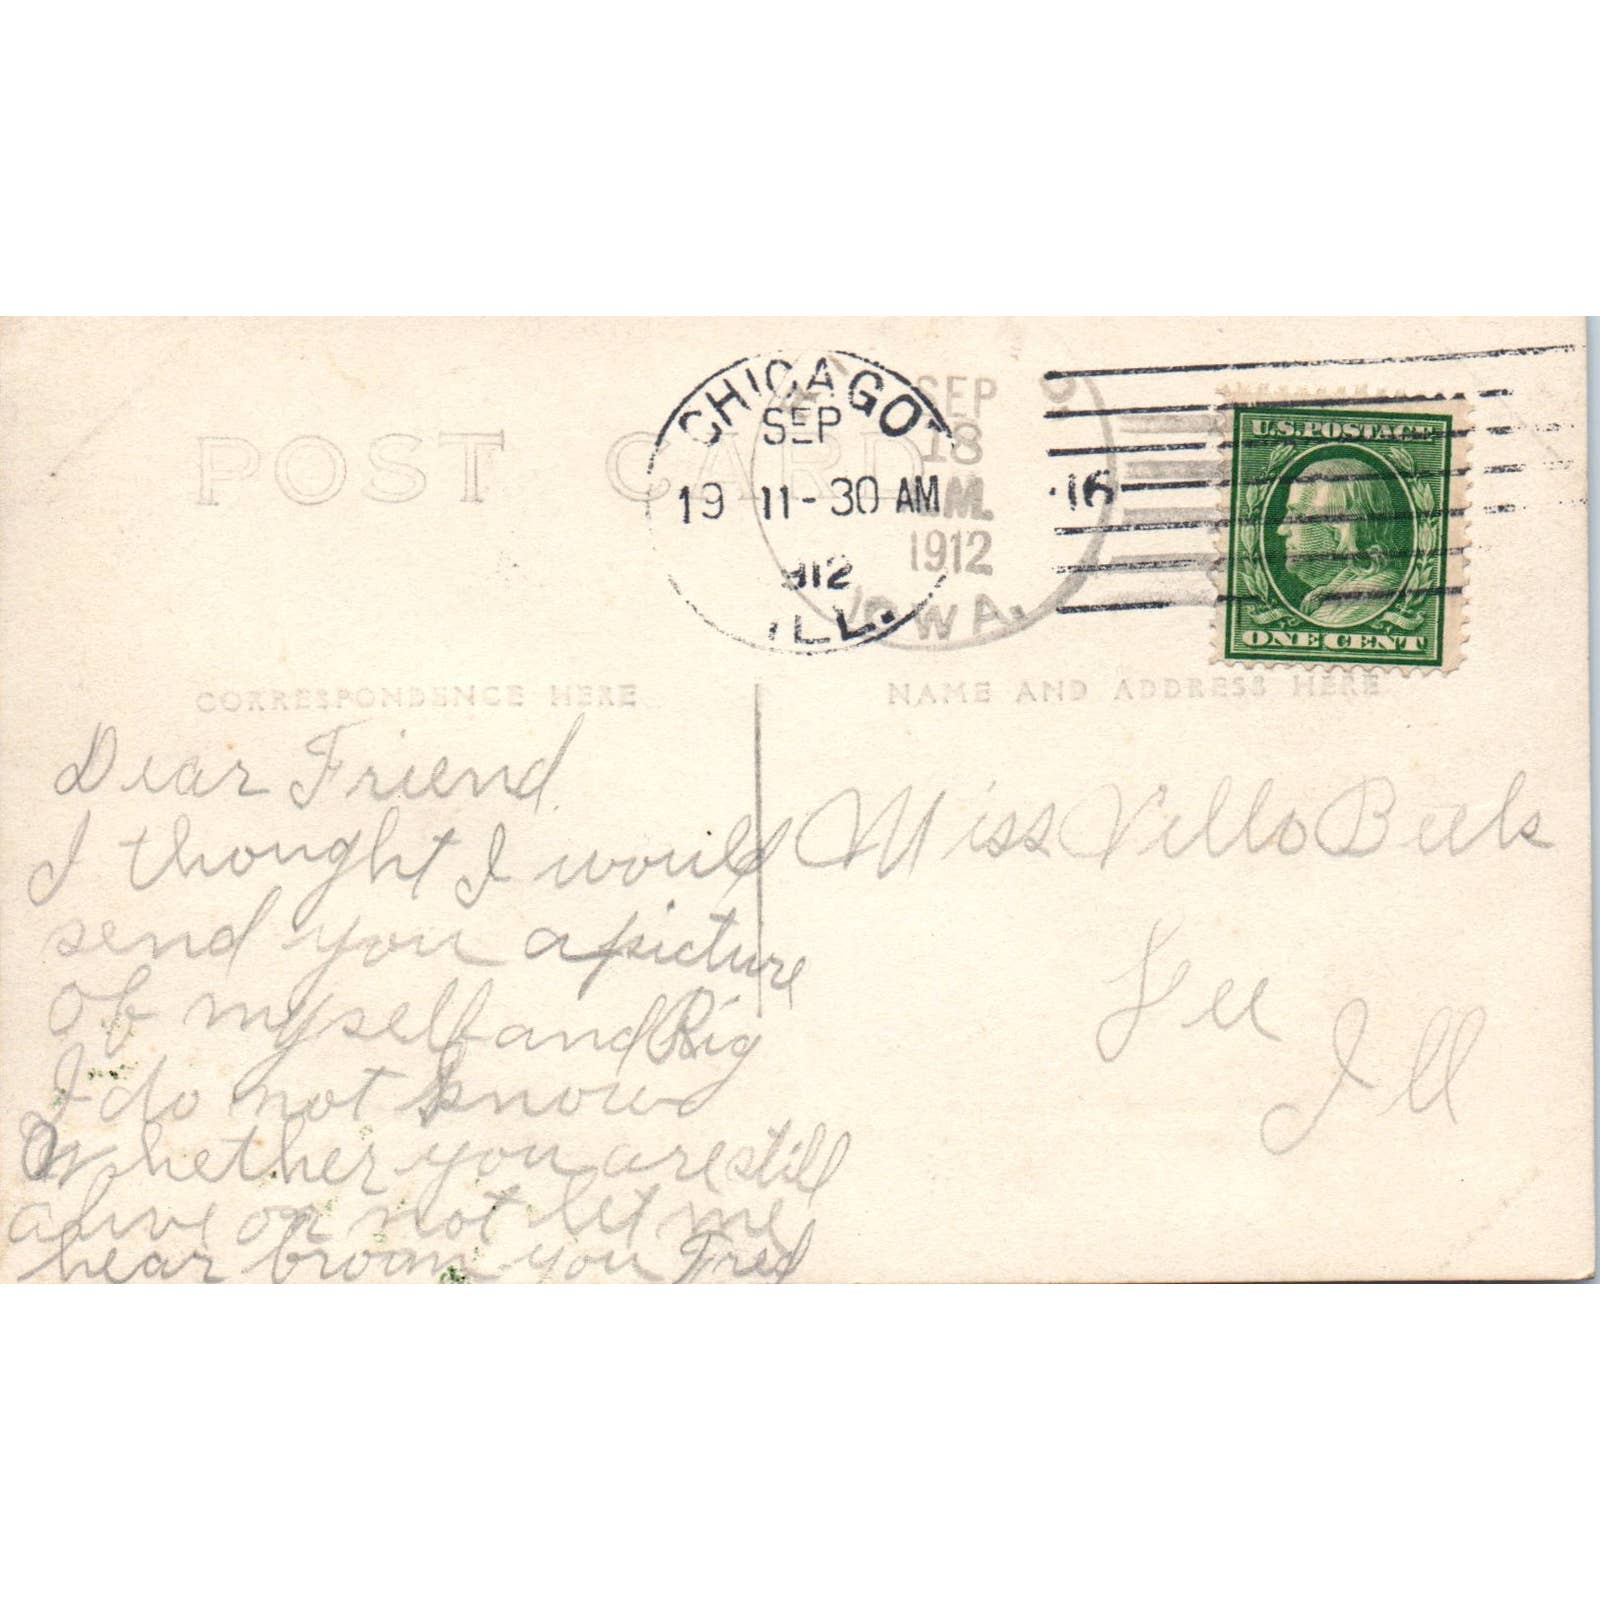 POST CARD
CHICAGO
SEP
19 11-30 AM
1912
ILL.
16
SEP
18
M.
1912
IOWA.
U.S. POSTAGE
ONE CENT
CORRESPONDENCE HERE
NAME AND ADDRESS HERE
Dear Friend
I thought I would
send you a picture
of myself and Rig
I do not know
whether you are still
alive or not let me
hear from you Fred
Miss Villo Beels
Lee
Ill